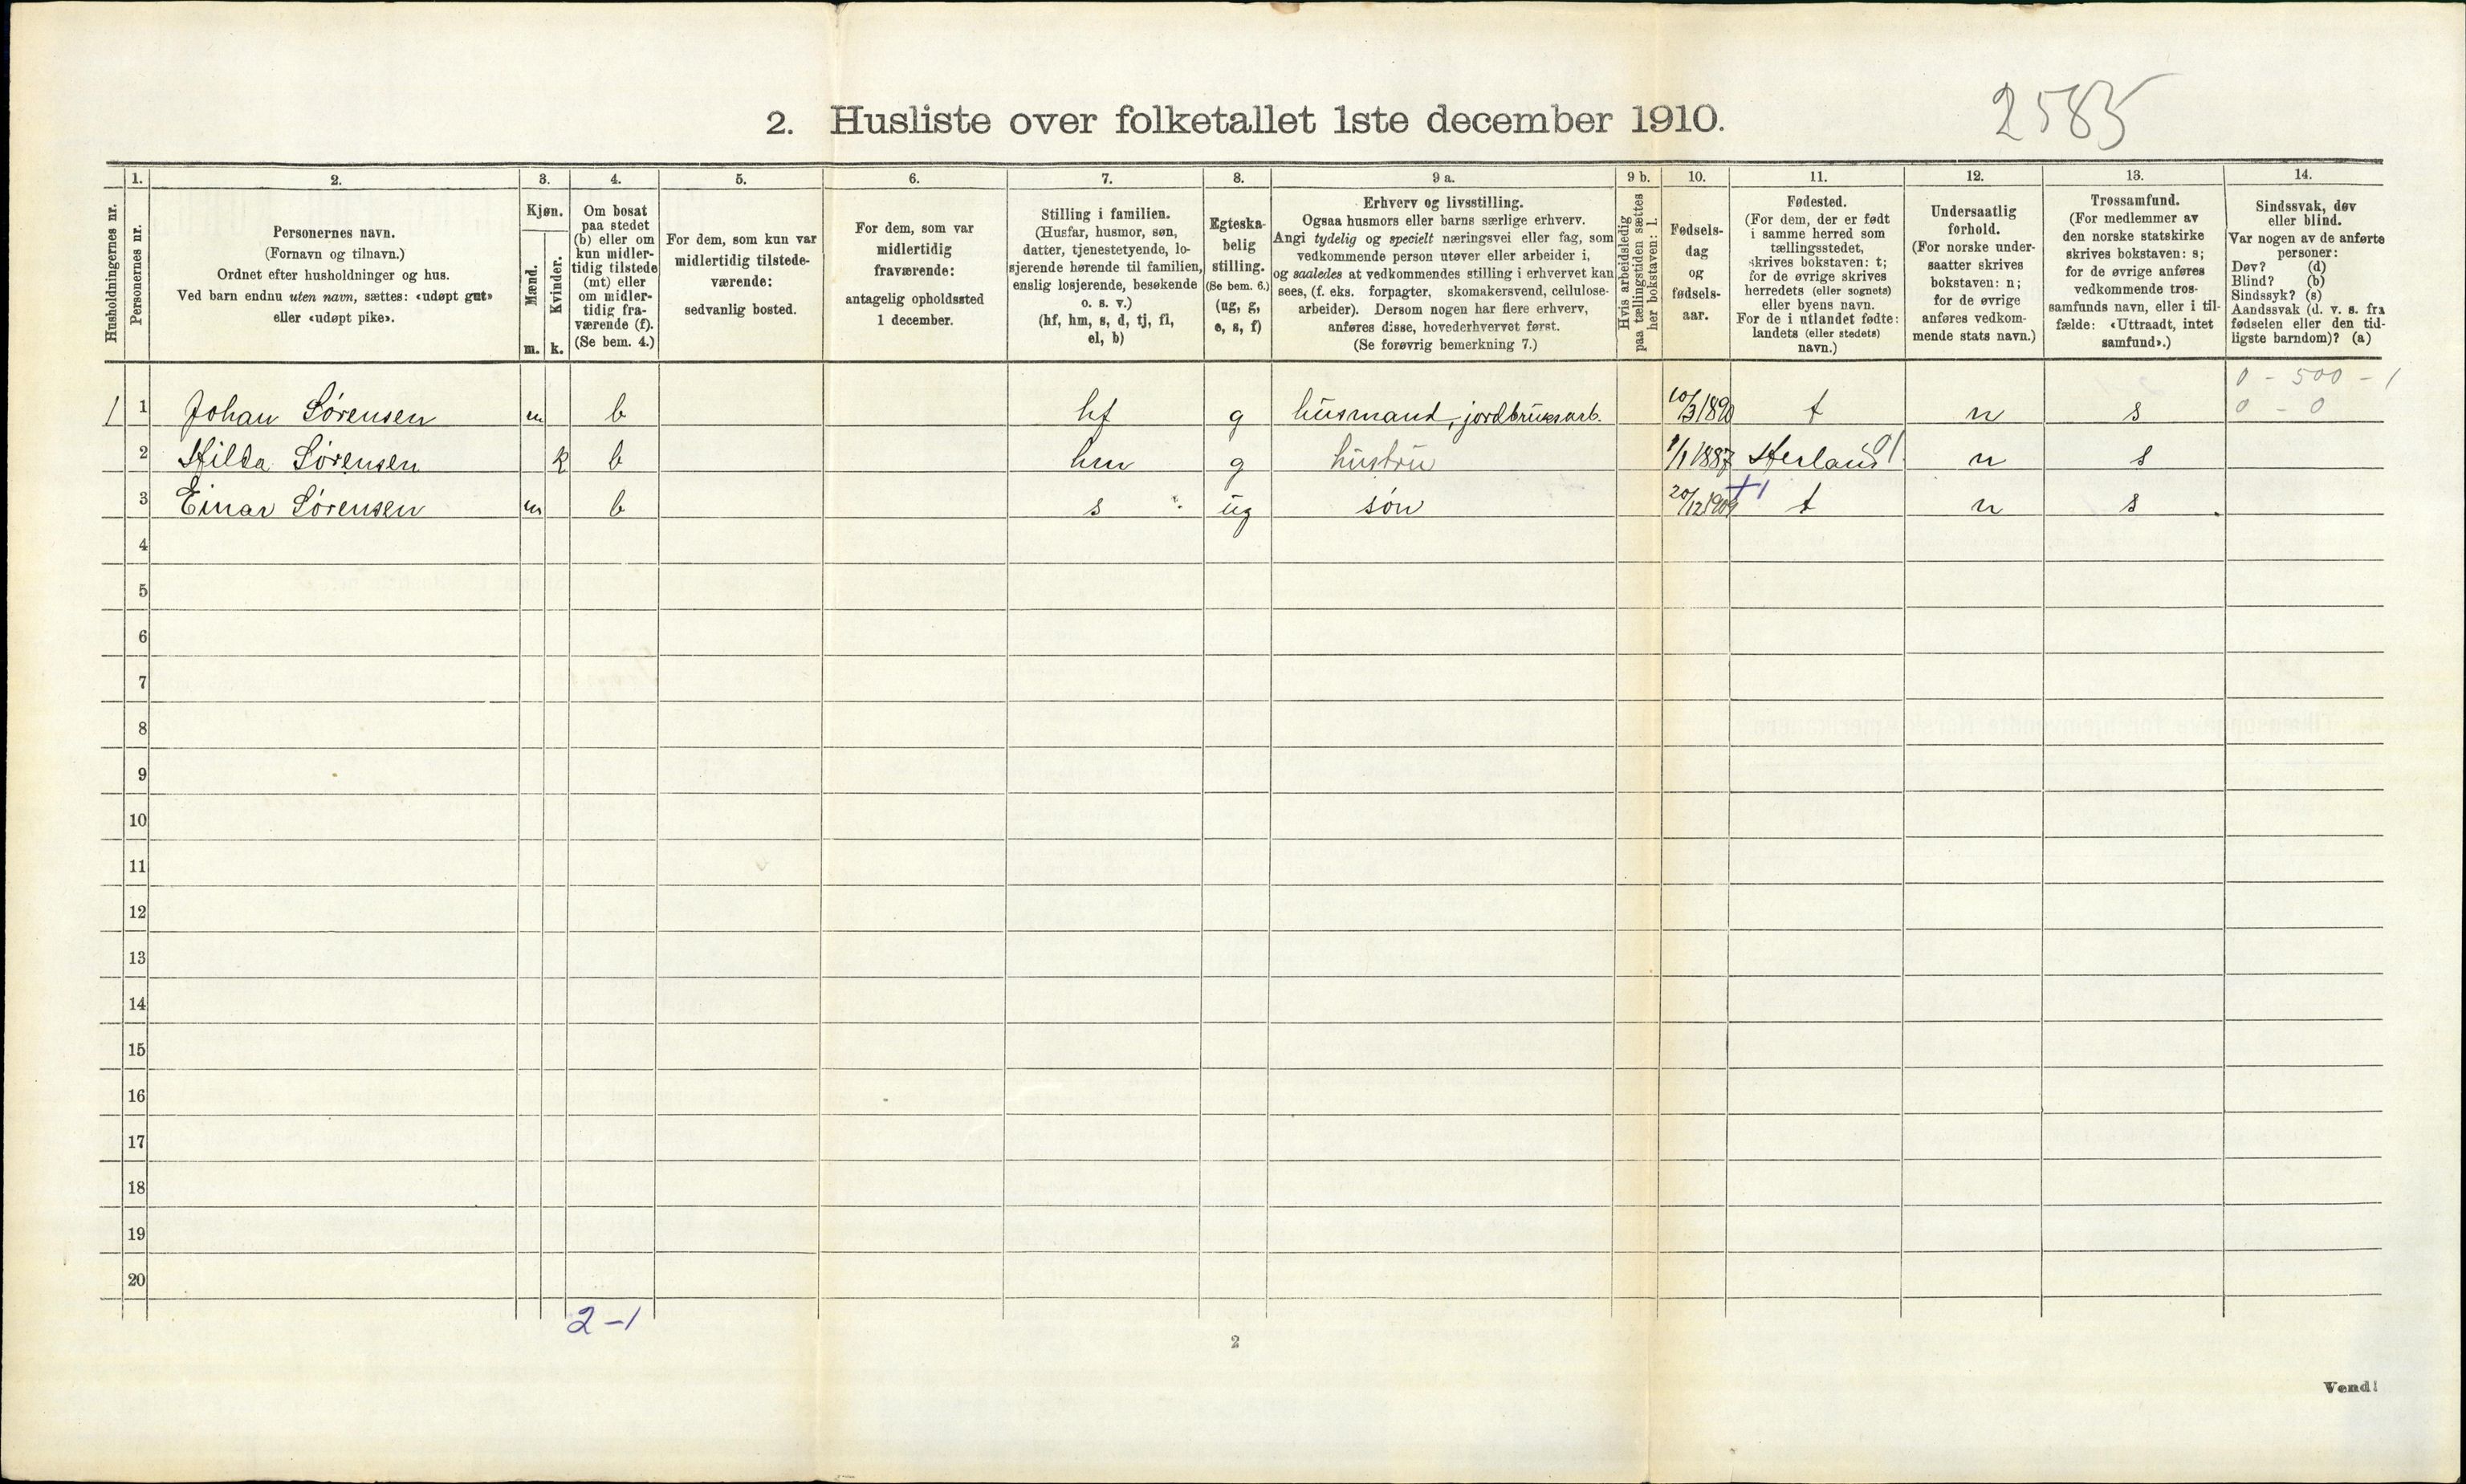 2. Husliste over folketallet 1ste december 1910.
2585
1. 2. 3. 4. 5. 6. 7. 8. 9 a. 9 b. 10. 11. 12. 13. 14.
Husholdningernes nr.
Personernes nr.
Personernes navn.
(Fornavn og tilnavn.)
Ordnet efter husholdninger og hus.
Ved barn endnu uten navn, sættes: «udøpt gut»
eller «udøpt pike».
Kjøn.
Mænd.
Kvinder.
m. k.
Om bosat
paa stedet
(b) eller om
kun midler-
tidig tilstede
(mt) eller
om midler-
tidig fra-
værende (f).
(Se bem. 4.)
For dem, som kun var
midlertidig tilstede-
værende:
sedvanlig bosted.
For dem, som var
midlertidig
fraværende:
antagelig opholdssted
1 december.
Stilling i familien.
(Husfar, husmor, søn,
datter, tjenestetyende, lo-
sjerende hørende til familien,
enslig losjerende, besøkende
o. s. v.)
(hf, hm, s, d, tj, fl,
el, b)
Egteska-
belig
stilling.
(Se bem. 6.)
(ug, g,
e, s, f)
Erhverv og livsstilling.
Ogsaa husmors eller barns særlige erhverv.
Angi tydelig og specielt næringsvei eller fag, som
vedkommende person utøver eller arbeider i,
og saaledes at vedkommendes stilling i erhvervet kan
sees, (f. eks. forpagter, skomakersvend, cellulose-
arbeider). Dersom nogen har flere erhverv,
anføres disse, hovederhvervet først.
(Se forøvrig bemerkning 7.)
Hvis arbeidsledig
paa tællingstiden sættes
her bokstaven: l.
Fødsels-
dag
og
fødsels-
aar.
Fødested.
(For dem, der er født
i samme herred som
tællingsstedet,
skrives bokstaven: t;
for de øvrige skrives
herredets (eller sognets)
eller byens navn.
For de i utlandet fødte:
landets (eller stedets)
navn.)
Undersaatlig
forhold.
(For norske under-
saatter skrives
bokstaven: n;
for de øvrige
anføres vedkom-
mende stats navn.)
Trossamfund.
(For medlemmer av
den norske statskirke
skrives bokstaven: s;
for de øvrige anføres
vedkommende tros-
samfunds navn, eller i til-
fælde: «Uttraadt, intet
samfund».)
Sindssvak, døv
eller blind.
Var nogen av de anførte
personer:
Døv? (d)
Blind? (b)
Sindssyk? (s)
Aandssvak (d. v. s. fra
fødselen eller den tid-
ligste barndom)? (a)
0 - 500 - 1
1 1 Johan Sørensen m b hf g husmand, jordbruksarb. 10/3 1890 t n s 0 - 0
2 Hilda Sørensen k b hm g hustru 9/1 1887 Herland 01 n s
3 Einar Sørensen m b s ug søn 20/12 1909 +1 t n s
4
5
6
7
8
9
10
11
12
13
14
15
16
17
18
19
20
2-1
2
Vend!